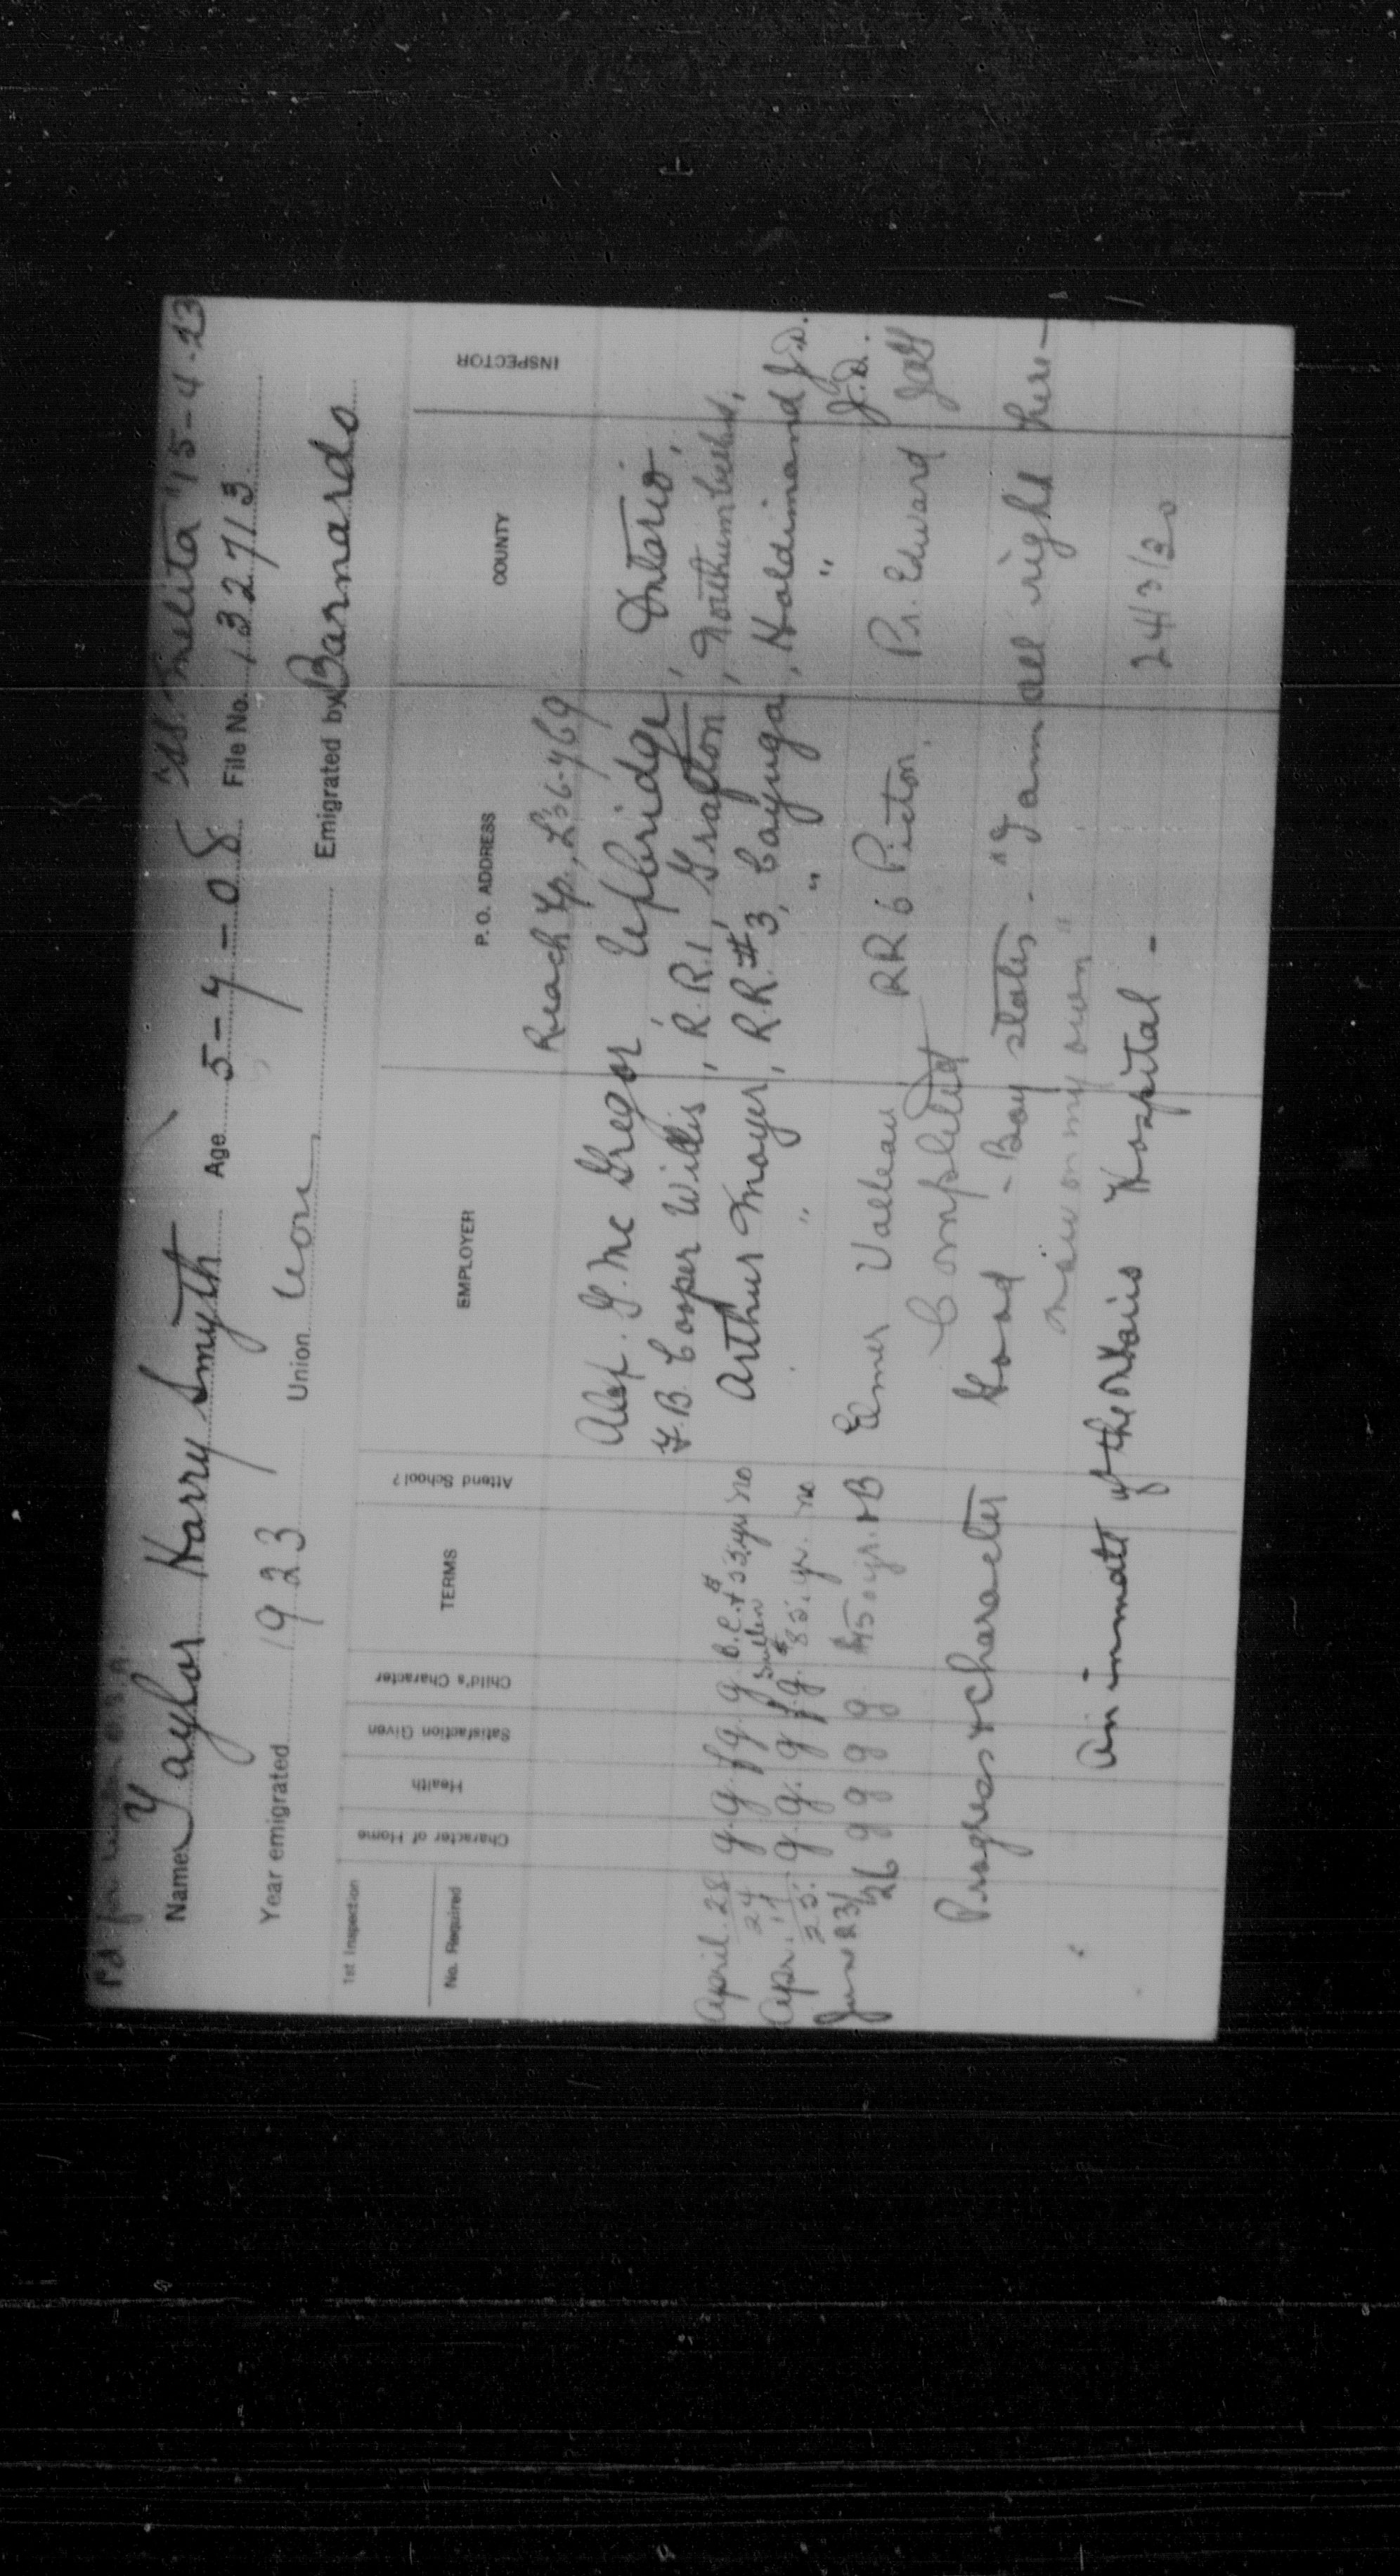 Pd for
"SS. Melita" 15-4-23
Name Taylor Harry Smyth Age 5-4-08 File No. 132713
Year emigrated 1923 Union Emigrated by Barnardo
1st Inspection
No. Required
Character of Home
Health
Satisfaction Given
Child's Character
TERMS
Attend School?
EMPLOYER
P. O. ADDRESS
COUNTY
INSPECTOR
Reach Tp.,
Alex. G. McGregor, Uxbridge, Ontario,
F. B. Cooper Willis, R.R.1, Grafton, Northumberland,
April 28/24 g. g. fg. g. B.C.+ no Arthur Moyer, R.R.#3, Cayuga, Haldimand J.D.
Apr. 25. g. g. g f.g. $85. yr. no " " " J.D.
26 g g g g yr. + B Elmer Valleau RR 6 Picton. Pr. Edward
Completed
Progress & Character Good - Boy states - "I am all right here -
now on my own"
An inmate of the Ontario Hospital - 24/3/30